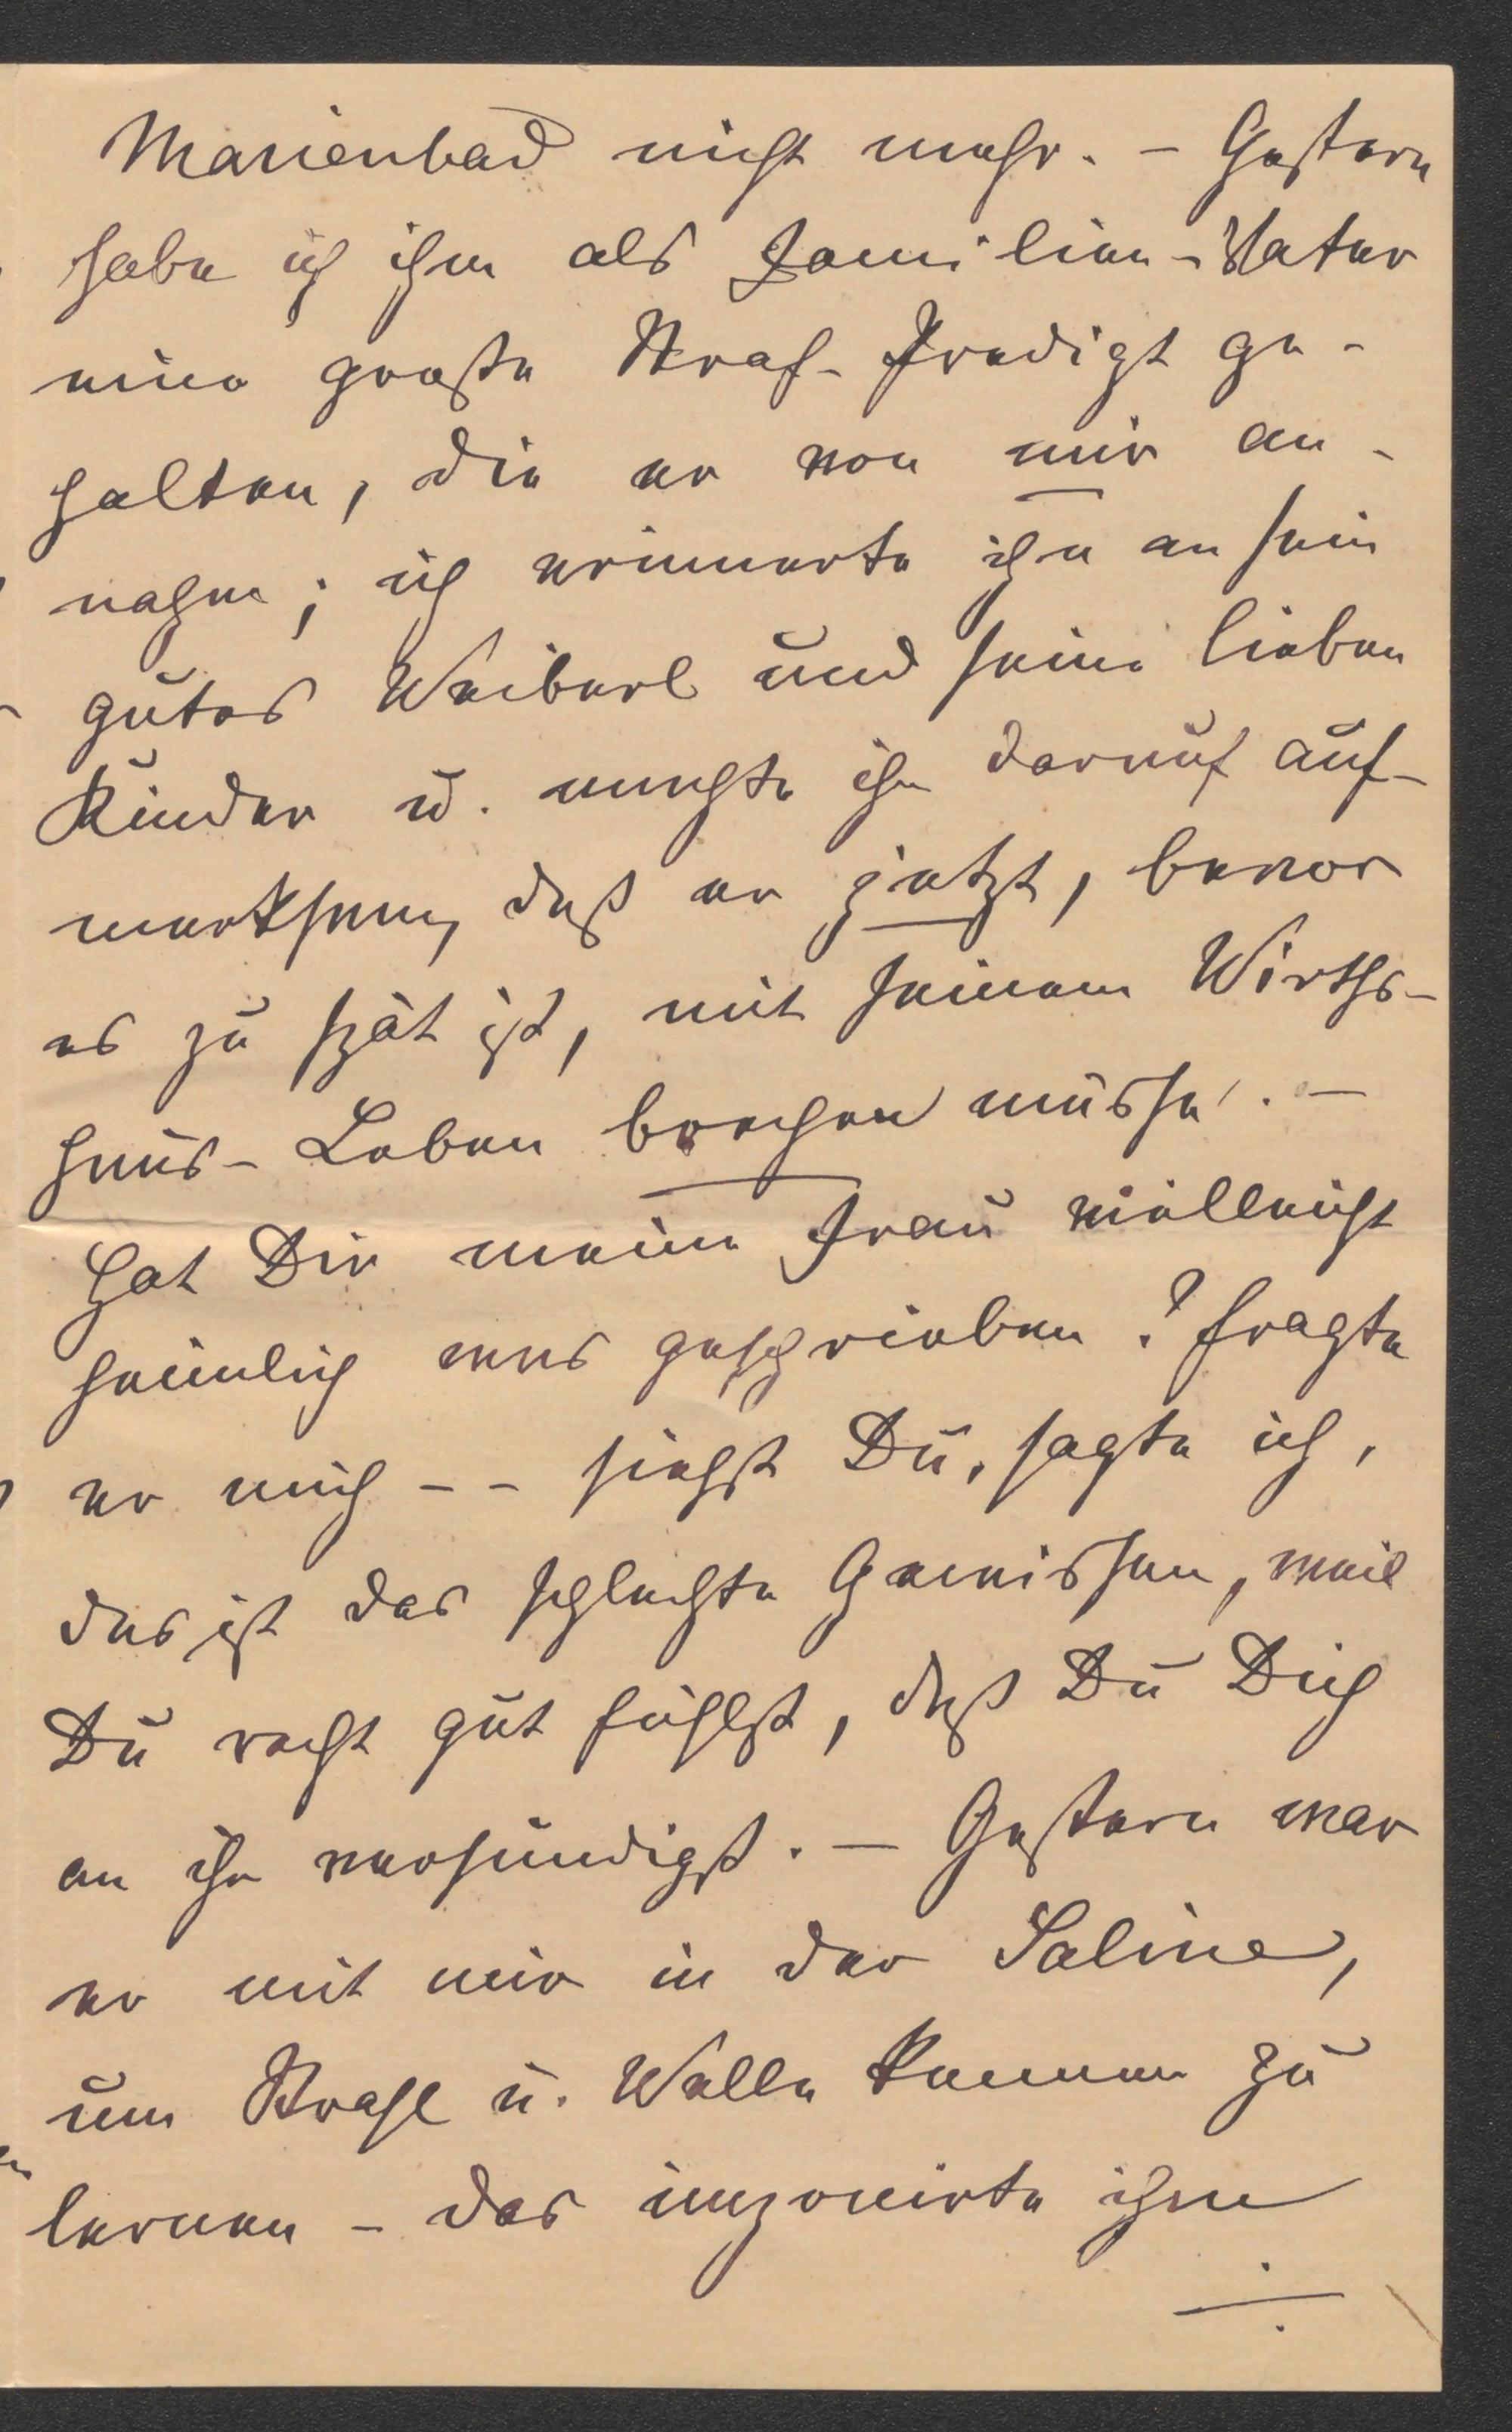 Marienbad nicht mehr. – Gestern
habe ich ihm als Familien-Vater
eine große Straf-Predigt ge-
halten, die er von mir an-
nahm; ich erinnerte ihn an sein
gutes Weiberl und seine lieben
Kinder u. machte ihn darauf auf-
merksam, daß er jetzt, bevor
es zu spät ist, mit seinem Wirths-
haus-Leben brechen müsse. –
Hat Dir meine Frau vielleicht
heimlich was geschrieben? fragte
er mich -- siehst Du, sagte ich,
das ist das schlechte Gewissen, weil
Du recht gut fühlst, daß Du Dich
an ihr versündigst. – Gestern war
er mit mir in der Saline,
um Strahl u. Welle kennen zu
lernen – das imponirte ihm